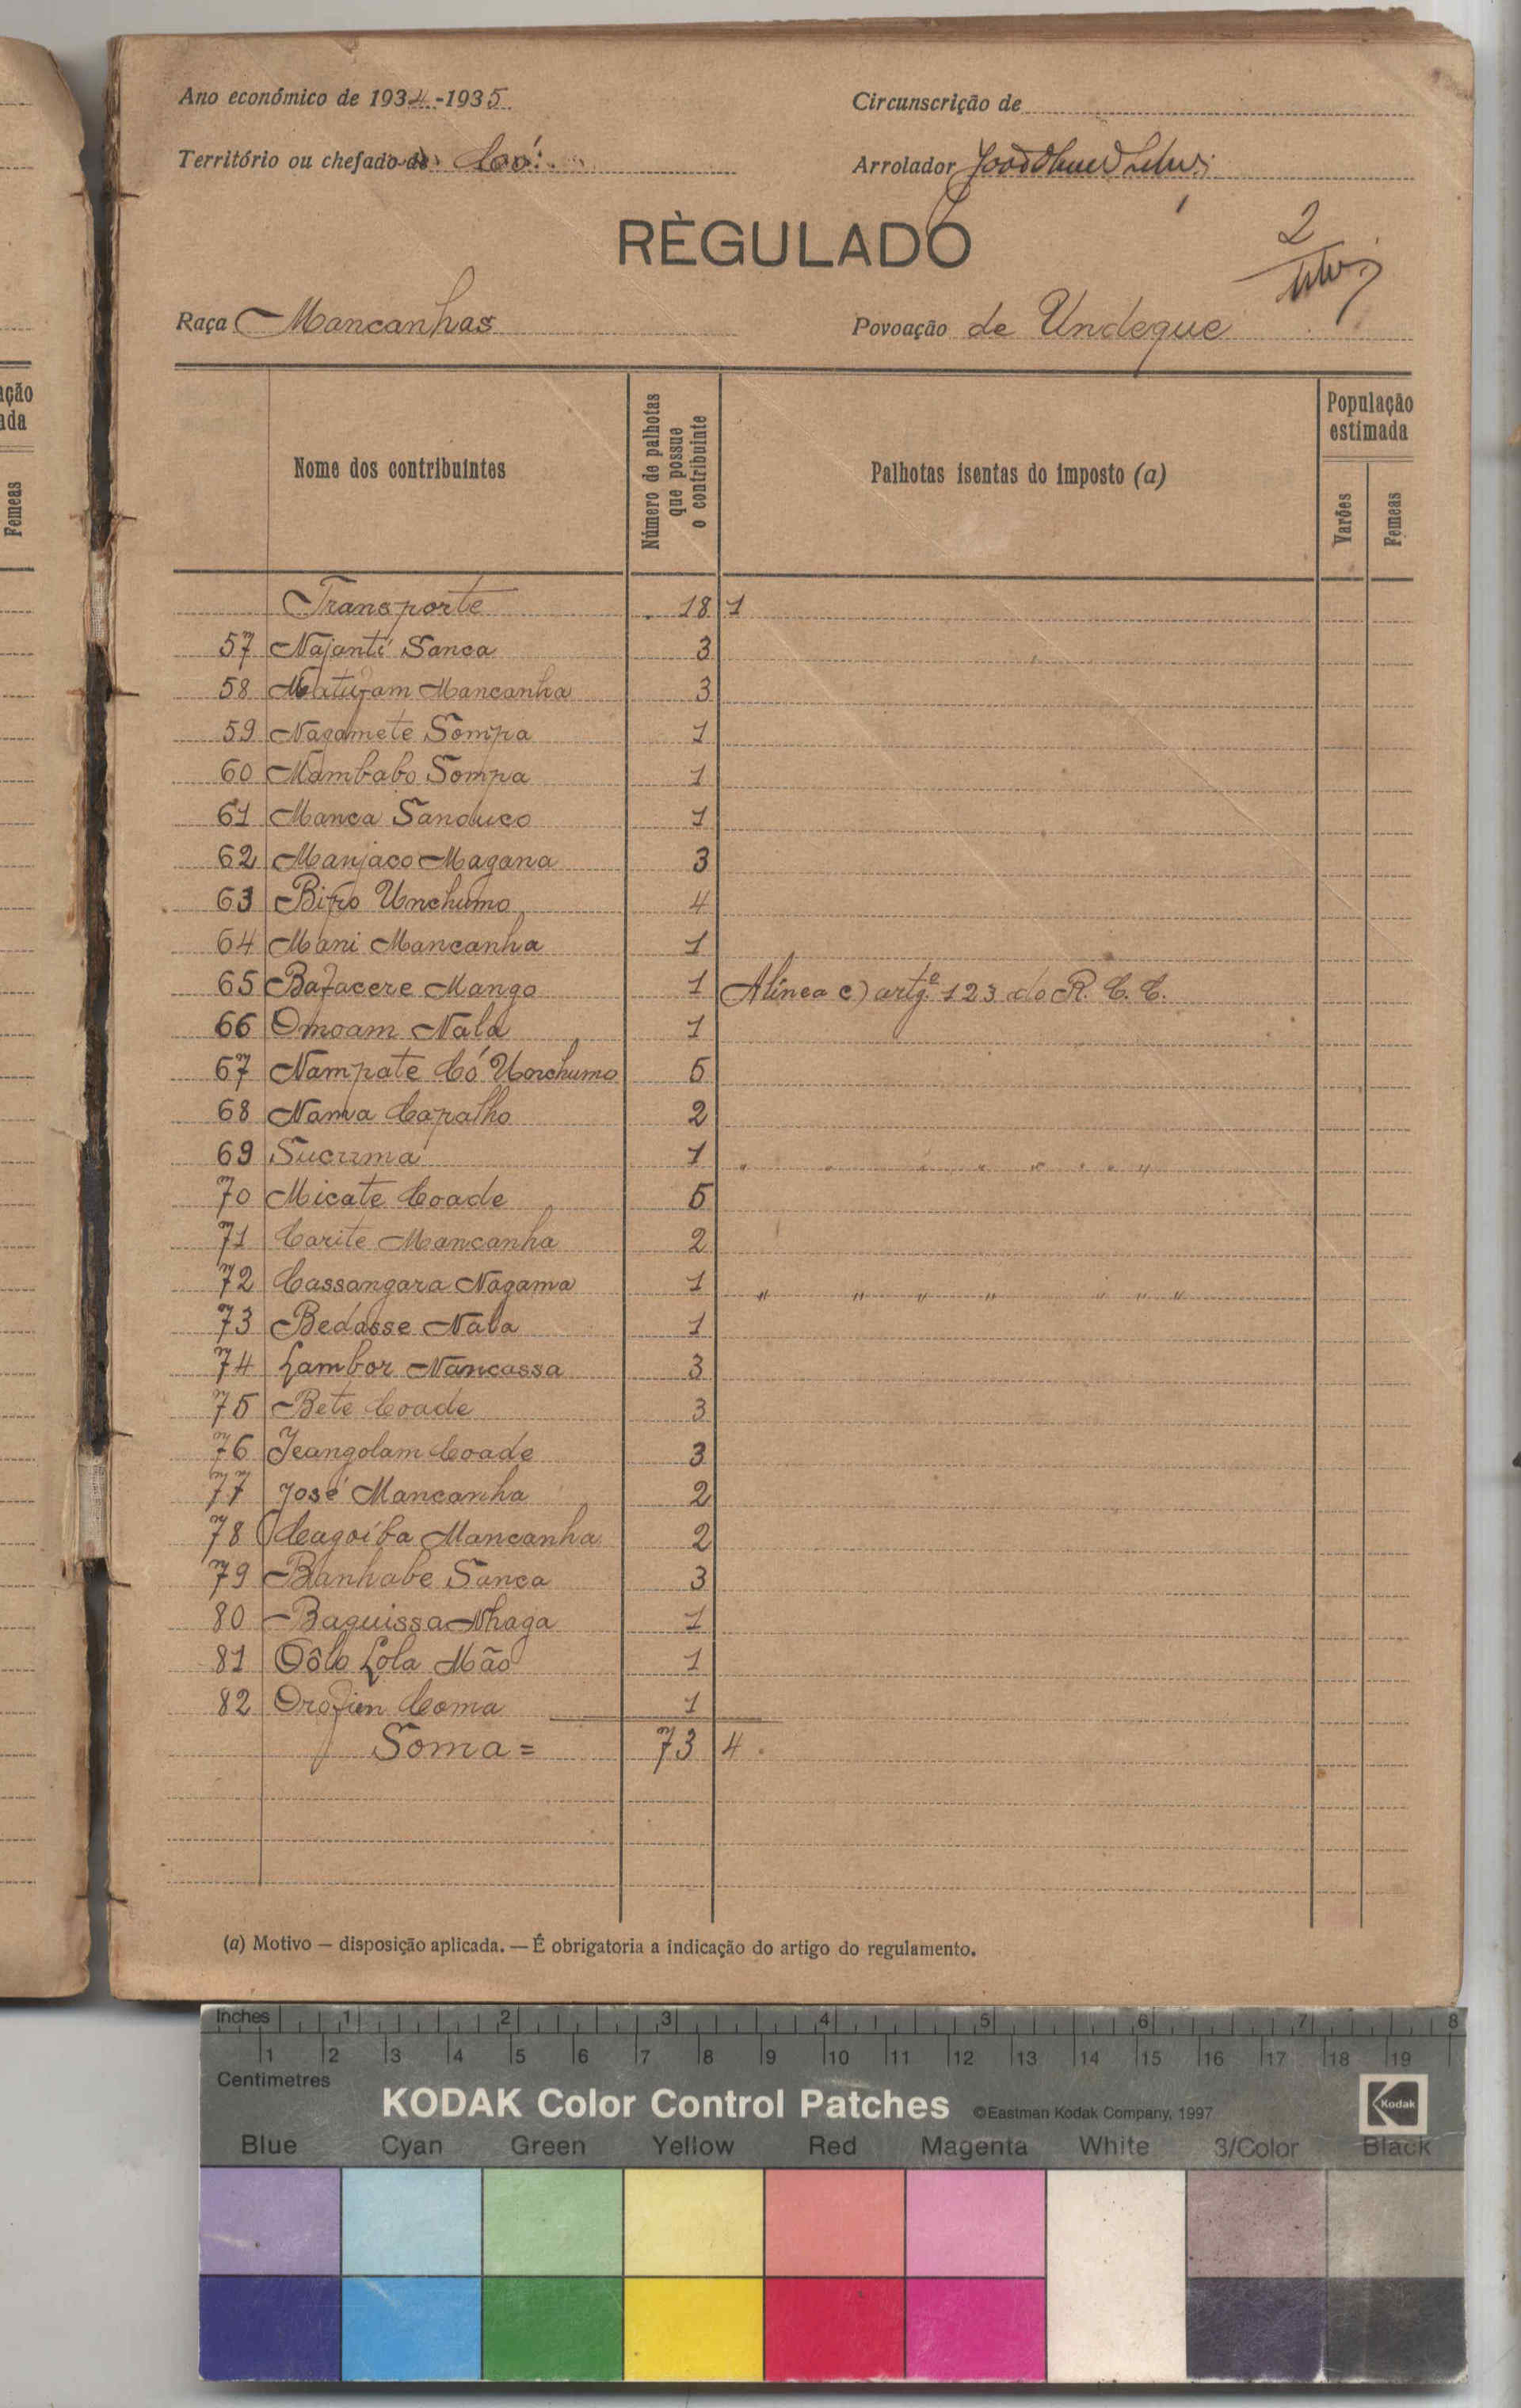 ação
ada
Femeas
Ano económico de 1934-1935
Circunscrição de
Território ou chefado de Có
Arrolador
RÈGULADO
2
Raça Mancanhas
Povoação de Undeque
Nome dos contribuintes
Número de palhotas que possue o contribuinte
Palhotas isentas do imposto (a)
População estimada
Varões
Femeas
Transporte 18 1
57 Najanti Sanca 3
58 Mancanha 3
59 Nagamete Sompa 1
60 Mambabo Sompa 1
61 Manca Sanduco 1
62 Manjaco Magana 3
63 Bifro Unchumo 4
64 Mani Mancanha 1
65 Bafacere Mango 1 Alínea c) artg.º 123 do R. C. C.
66 Omoam Nala 1
67 Nampate Có Unchumo 5
68 Nama Capalho 2
69 Sucuma 1 " " " " " " " "
70 Micate Coade 5
71 Carite Mancanha 2
72 Cassangara Nagama 1 " " " " " " "
73 Bedasse Nala 1
74 Lambor Nancassa 3
75 Bete Coade 3
76 Jeangolam Coade 3
77 José Mancanha 2
78 Cagoíba Mancanha 2
79 Banhabe Sanca 3
80 Baguissa Nhaga 1
81 Ôlo Lola Mão 1
82 Coma 1
Soma = 73 4
(a) Motivo — disposição aplicada. — É obrigatoria a indicação do artigo do regulamento.
Inches 1 2 3 4 5 6 7 8
1 2 3 4 5 6 7 8 9 10 11 12 13 14 15 16 17 18 19
Centimetres
KODAK Color Control Patches ©Eastman Kodak Company, 1997 Kodak
Blue Cyan Green Yellow Red Magenta White 3/Color Black